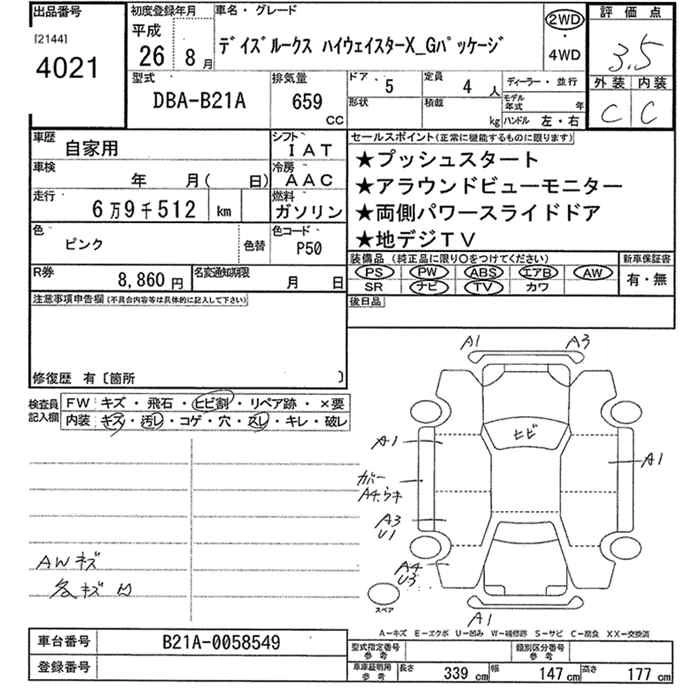 出品番号
[2144]
4021
初度登録年月
平成
26 8月
車名・グレード
デイズルークス ハイウェイスターX_Gパッケージ
2WD
・
4WD
評価点
3.5
外装 内装
C C
型式
DBA-B21A
排気量
659
CC
ドア 5
定員 4 人
ディーラー・並行
形状
積載 kg
モデル年式 年
ハンドル 左・右
車歴
自家用
シフト
IAT
車検
年 月( 日)
冷房
AAC
走行
6万9千512 km
燃料
ガソリン
色
ピンク
色替
色コード
P50
R券
8,860円
名変通知期限
月 日
セールスポイント(正常に機能するものに限ります)
★プッシュスタート
★アラウンドビューモニター
★両側パワースライドドア
★地デジTV
装備品 (純正品に限り○をつけてください)
PS PW ABS エアB AW
SR ナビ TV カワ
新車保証書
有・無
後日品
注意事項申告欄(不具合内容等は具体的に記入して下さい)
修復歴 有〔箇所 〕
検査員記入欄
FW キズ・飛石・ヒビ割・リペア跡・×要
内装 キズ・汚レ・コゲ・穴・凹レ・キレ・破レ
AWキズ
各キズ凹
A1 A3
ヒビ
A1
A1
カバー
A4.ウキ
A3
U1
A4
U3
A1
スペア
A―キズ E―エクボ U―凹み W―補修跡 S―サビ C―腐食 XX―交換済
車台番号
B21A-0058549
登録番号
型式指定番号
参考
類別区分番号
参考
車庫証明用
参考
長さ 339 cm
幅 147 cm
高さ 177 cm